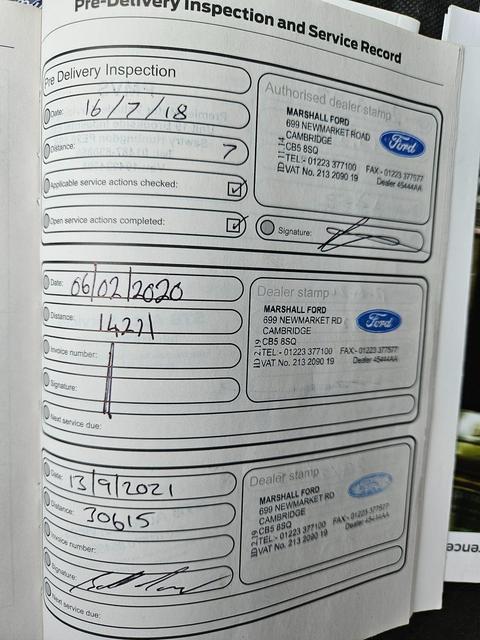 Pre-Delivery Inspection and Service Record
Pre Delivery Inspection
Date: 16/7/18
Distance: 7
Applicable service actions checked:
Open service actions completed:
Authorised dealer stamp
MARSHALL FORD
699 NEWMARKET ROAD
CAMBRIDGE
CB5 8SQ
TEL - 01223 377100 FAX - 01223 377577
VAT No. 213 2090 19 Dealer 45444AA
Ford
Signature:
Date: 06/02/2020
Distance: 14271
Invoice number:
Signature:
Next service due:
Dealer stamp
MARSHALL FORD
699 NEWMARKET RD
CAMBRIDGE
CB5 8SQ
TEL - 01223 377100 FAX - 01223 377577
VAT No. 213 2090 19 Dealer 45444AA
Ford
Date: 13/9/2021
Distance: 30615
Invoice number:
Signature:
Next service due:
Dealer stamp
MARSHALL FORD
699 NEWMARKET RD
CAMBRIDGE
CB5 8SQ
TEL - 01223 377100 FAX - 01223 377577
VAT No. 213 2090 19 Dealer 45444AA
Ford